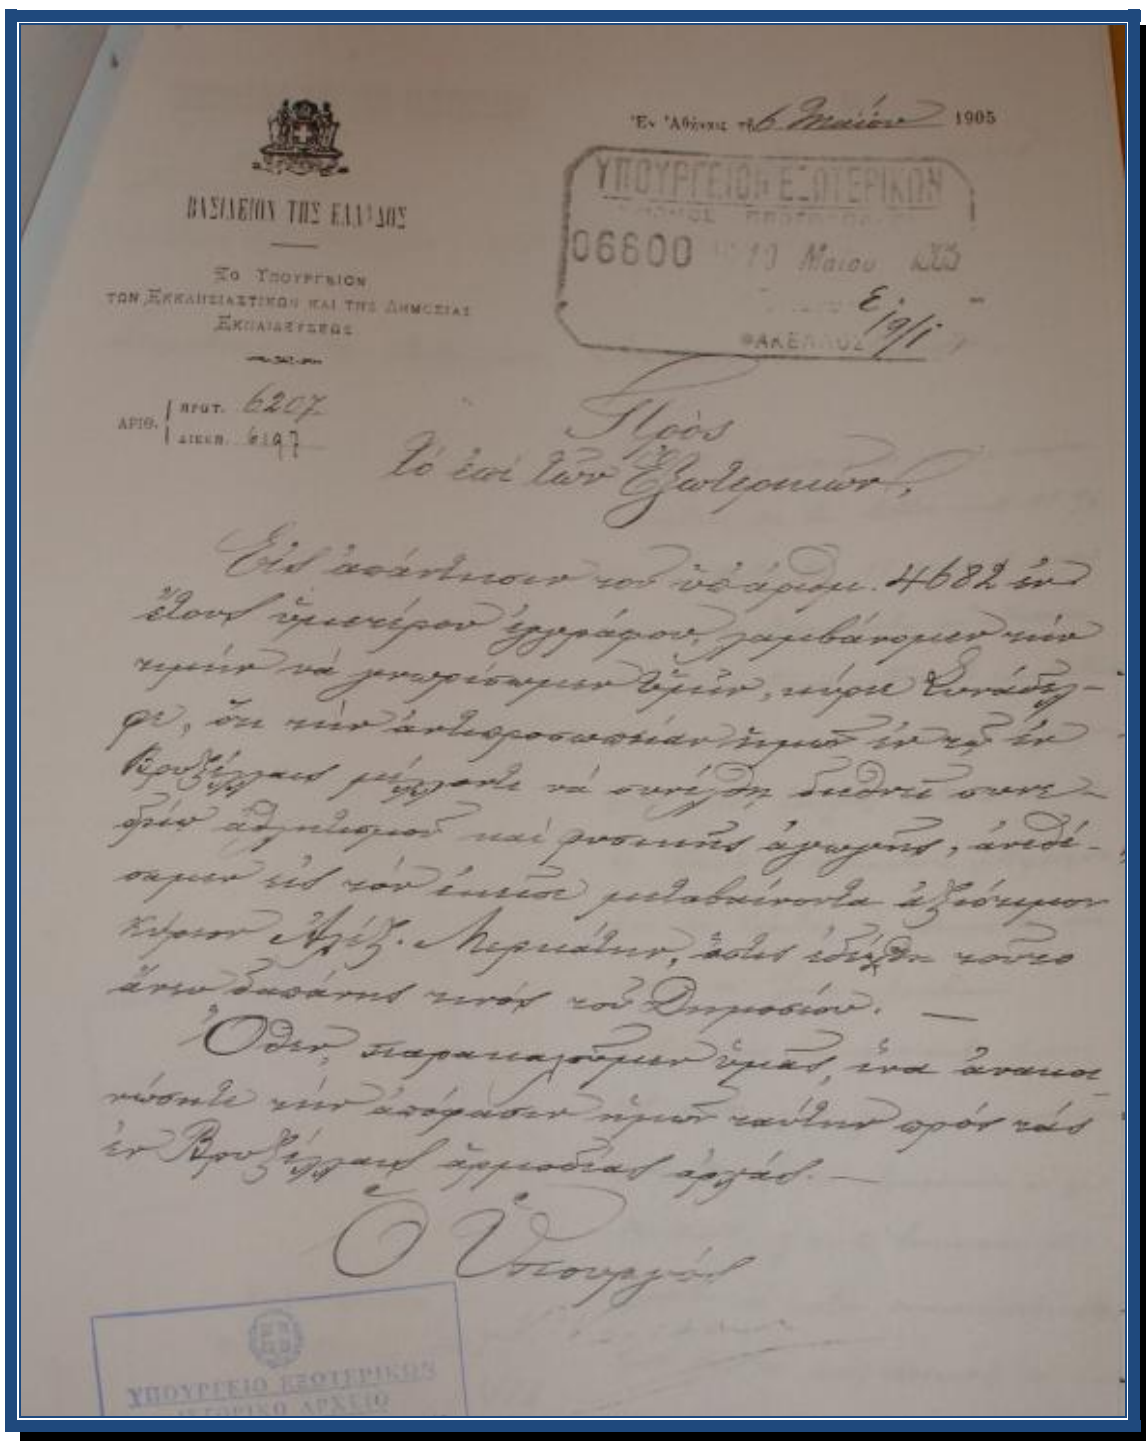 Ἐν Ἀθήναις τῇ 6 Μαΐου 1905
ΒΑΣΙΛΕΙΟΝ ΤΗΣ ΕΛΛΑΔΟΣ
ΤΟ ΥΠΟΥΡΓΕΙΟΝ
ΤΩΝ ΕΚΚΛΗΣΙΑΣΤΙΚΩΝ ΚΑΙ ΤΗΣ ΔΗΜΟΣΙΑΣ
ΕΚΠΑΙΔΕΥΣΕΩΣ
ΑΡΙΘ.
ΠΡΩΤ. 6207
ΔΙΕΚΠ. 6197
ΥΠΟΥΡΓΕΙΟΝ ΕΞΩΤΕΡΙΚΩΝ
06600 10 Μαιου
ΦΑΚΕΛΛΟΣ
Πρὸς
τὸ ἐπὶ τῶν Ἐξωτερικῶν,
Εἰς ἀπάντησιν τοῦ ὑπ' ἀριθμ. 4682 ἐν
ἔτους ὑμετέρου ἐγγράφου, λαμβάνομεν τὴν
τιμὴν νὰ γνωρίσωμεν Ὑμῖν, κύριε Συνάδελ-
φε, ὅτι τὴν ἀντιπροσωπείαν ἡμῶν ἐν τῷ ἐν
Βρυξέλλαις μέλλοντι νὰ συνέλθῃ διεθνεῖ συνε-
δρίῳ ἀθλητισμοῦ καὶ φυσικῆς ἀγωγῆς, ἀνεθέ-
σαμεν εἰς τὸν ἐκεῖσε μεταβαίνοντα ἀξιότιμον
κύριον Ἀλέξ. Μερκάτην, ὅστις ἐδέχθη τοῦτο
ἄνευ δαπάνης τινὸς τοῦ Δημοσίου. —
Ὅθεν, παρακαλοῦμεν ὑμᾶς, ἵνα ἀνακοι-
νώσητε τὴν ἀπόφασιν ἡμῶν ταύτην πρὸς τὰς
ἐν Βρυξέλλαις ἁρμοδίας ἀρχάς. —
Ὁ Ὑπουργός
ΥΠΟΥΡΓΕΙΟ ΕΞΩΤΕΡΙΚΩΝ
ΙΣΤΟΡΙΚΟ ΑΡΧΕΙΟ